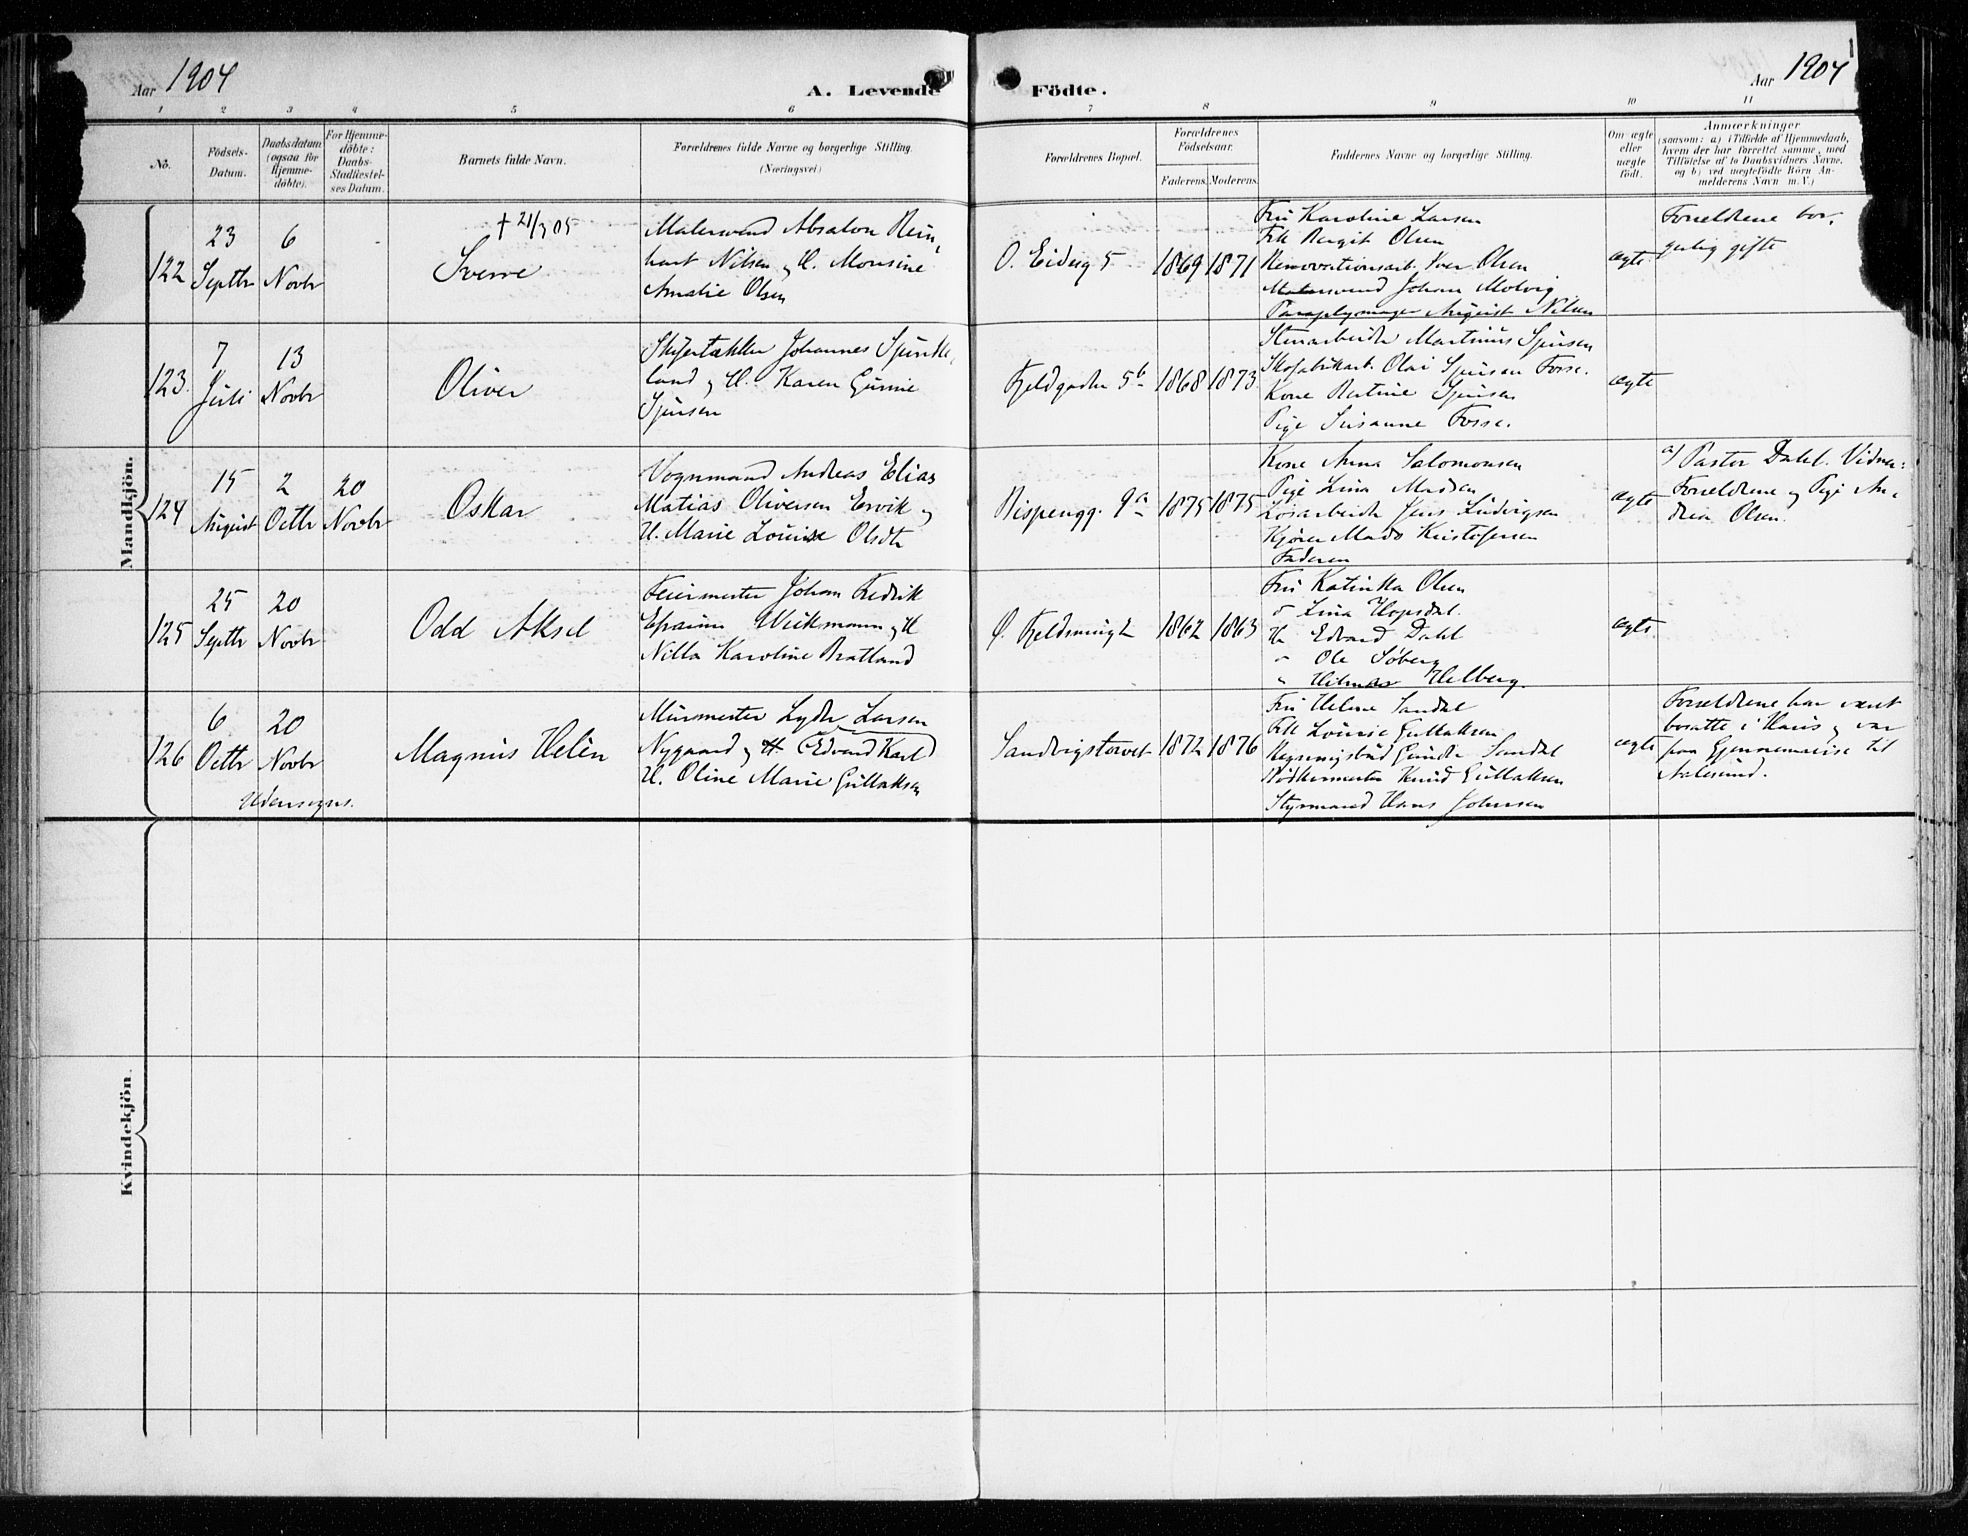 Aar 1904
A. Levende
1 2 3 4 5 6
No.
Födsels-
Datum.
Daabsdatum
(ogsaa for
Hjemme-
döbte).
For Hjemme-
döbte:
Daabs-
Stadfæstel-
ses Datum.
Barnets fulde Navn.
Forældrenes fulde Navne og borgerlige Stilling.
(Næringsvei)
Mandkjön.
122
23
Septbr
6
Novbr
† 21/3 05
Sverre
Malersvend Absalon Rein-
hart Nilsen og H. Monsine
Amalie Olsen
123.
7
Juli
13
Novbr
Oliver
Johannes
land og H. Karen Gurine
Sjursen
124
15
August
2
Octbr
20
Novbr
Oskar
Vognmand Andreas Elias
Matias Oliversen Ervik og
H. Marie Louise Olsdtr
125
25
Septbr
20
Novbr
Odd Aksel
Feiermester Johan Fredrik
Efraim Wickmann og H
Nilla Karoline Bratland
126
6
Octbr
20
Novbr
Udensogns.
Magnus Helèn
Murmester Lyder Larsen
Nygaard og H (Edvard Karl)
H. Oline Marie Gullaksen
Kvindekjön.
Födte.
Aar 1904
7 8 9 10 11
Forældrenes Bopæl.
Forældrenes
Födselsaar.
Faderens. Moderens.
Faddernes Navne og borgerlige Stilling.
Om ægte
eller
uægte
födt.
Anmærkninger
(saasom: a) i Tilfælde af Hjemmedaab,
hvem der har forrettet samme, med
Tilföielse af to Daabsvidners Navne,
og b) ved uægtefödte Börn An-
melderens Navn m. V.)
O. Eidsg 5
1869 1871
Fru Karoline Larsen
Frk Bergit Olsen
Renovationsarb. Iver Olsen
Malersvend Johan Molvig
Paraplymager August Nilsen
ægte
Forældrene bor-
gerlig gifte
Fjeldgaden 5b
1868 1873.
Stenarbeider Martinus Sjursen
Skofabrikarb. Olai Sjursen Fosse.
Kone Bertine Sjursen
Pige Susanne Fosse.
ægte
Bispengg. 9a
1875 1875
Kone Anna Salomonsen
Pige Lina Madsen
Løsarbeider Jens Ludvigsen
Kjører Mads Kristofersen
Faderen
ægte
a) Pastor Dahl. Vidner:
Forældrene og Pige An-
drea Olsen.
Ø. Fjeldsmug 2
1862 1863
Fru Katinka Olsen
" Lina Hopsdal.
Hr Edvard Dahl
" Ole Søberg
" Hilmar Helberg.
ægte.
Sandvigstorvet
1872 1876
Fru Helene Sandal
Frk Lovise Gullaksen
Gunder Sandal
Bødkermester Knud Gullaksen
Styrmand Hans Johnsen
ægte
Forældrene har været
bosatte i Haus og var
paa Gjennemreise til
Aalesund.